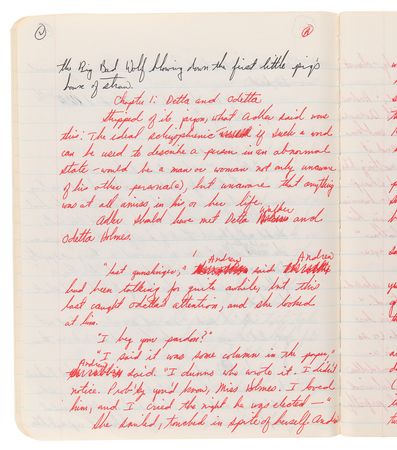 the Big Bad Wolf blowing down the first little pig's
house of straw.
Chapter 1: Detta and Odetta
Stripped of its jargon, what Adler said was
this: The ideal schizophrenic if such a word
can be used to describe a person in an abnormal
state - would be a man or woman not only unaware
of his other persona(e), but unaware that anything
was at all amiss in his or her life.
Adler should have met Detta Walker and
Odetta Holmes.
"last gunslinger," Andrew said. Andrew
had been talking for quite awhile, but this
last caught Odetta's attention, and she looked
at him.
"I beg your pardon?"
"I said it was some column in the paper,"
Andrew said. "I dunno who wrote it. I didn't
notice. Prob'ly you'd know, Miss Holmes. I loved
him, and I cried the night he was elected —"
She smiled, touched in spite of herself. Andrew